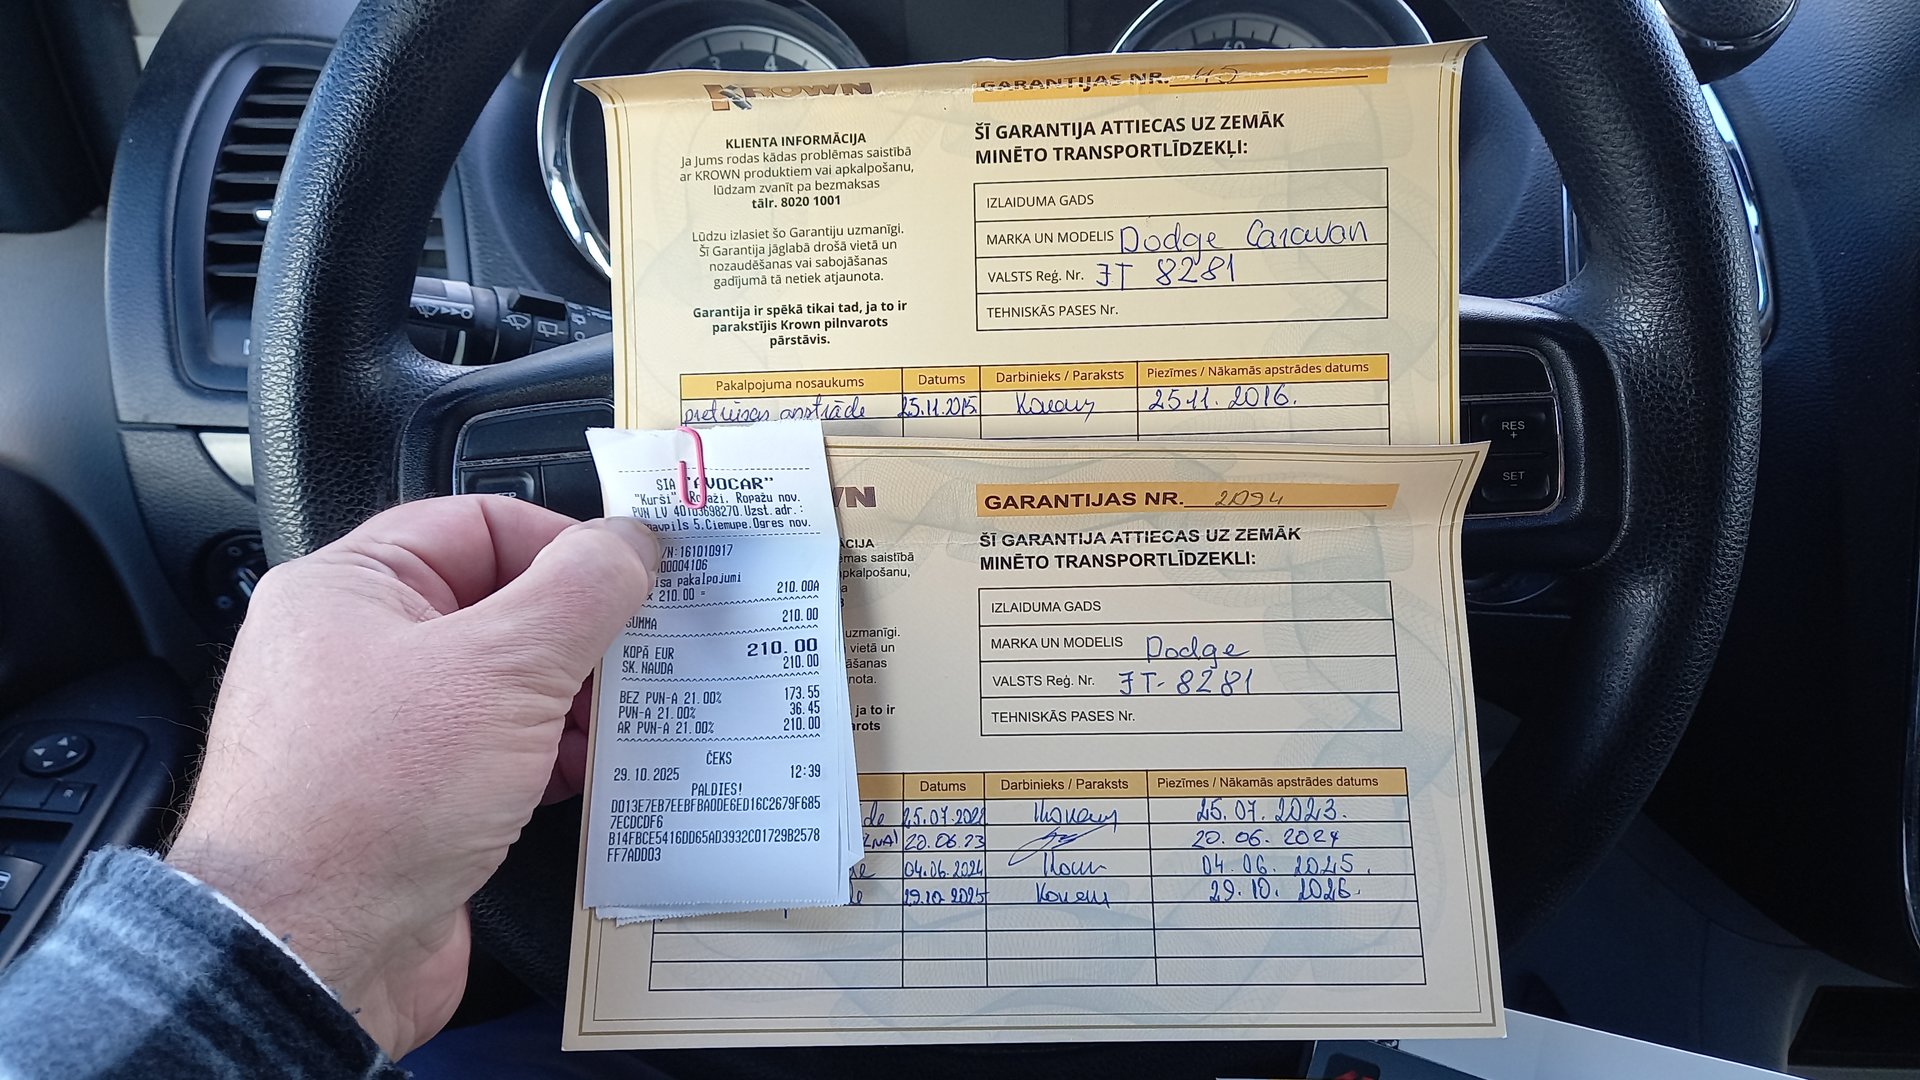 KROWN
GARANTIJAS NR. 45
KLIENTA INFORMĀCIJA
Ja Jums rodas kādas problēmas saistībā
ar KROWN produktiem vai apkalpošanu,
lūdzam zvanīt pa bezmaksas
tālr. 8020 1001
Lūdzu izlasiet šo Garantiju uzmanīgi.
Šī Garantija jāglabā drošā vietā un
nozaudēšanas vai sabojāšanas
gadījumā tā netiek atjaunota.
Garantija ir spēkā tikai tad, ja to ir
parakstījis Krown pilnvarots
pārstāvis.
ŠĪ GARANTIJA ATTIECAS UZ ZEMĀK
MINĒTO TRANSPORTLĪDZEKĻI:
IZLAIDUMA GADS
MARKA UN MODELIS Dodge Caravan
VALSTS Reģ. Nr. JT 8281
TEHNISKĀS PASES Nr.
Pakalpojuma nosaukums Datums Darbinieks / Paraksts Piezīmes / Nākamās apstrādes datums
pretrūsas apstrāde 25.11.2015 25.11. 2016.
SIA "AVOCAR"
"Kurši", Ropaži, Ropažu nov.
PVN LV 40103698270.Uzst.adr.:
5.Ciemupe.Ogres nov.
/N:161010917
00004106
pakalpojumi
x 210.00 = 210.00A
SUMMA 210.00
KOPĀ EUR 210.00
SK.NAUDA 210.00
BEZ PVN-A 21.00% 173.55
PVN-A 21.00% 36.45
AR PVN-A 21.00% 210.00
ČEKS
29.10.2025 12:39
PALDIES!
D013E7EB7EEBFBA0DE6ED16C2679F685
7ECDCDF6
B14FBCE5416DD65AD3932C01729B2578
FF7ADD03
WN
GARANTIJAS NR. 2094
ĀCIJA
ēmas saistībā
pkalpošanu,
uzmanīgi.
vietā un
āšanas
nota.
ja to ir
arots
ŠĪ GARANTIJA ATTIECAS UZ ZEMĀK
MINĒTO TRANSPORTLĪDZEKLI:
IZLAIDUMA GADS
MARKA UN MODELIS Dodge
VALSTS Reģ. Nr. JT-8281
TEHNISKĀS PASES Nr.
Datums Darbinieks / Paraksts Piezīmes / Nākamās apstrādes datums
de 25.07.2022 25.07. 2023.
20.06.23 20.06. 2024
04.06.2024 04.06. 2025.
29.10.2025 29.10. 2026.
RES
+
SET
-